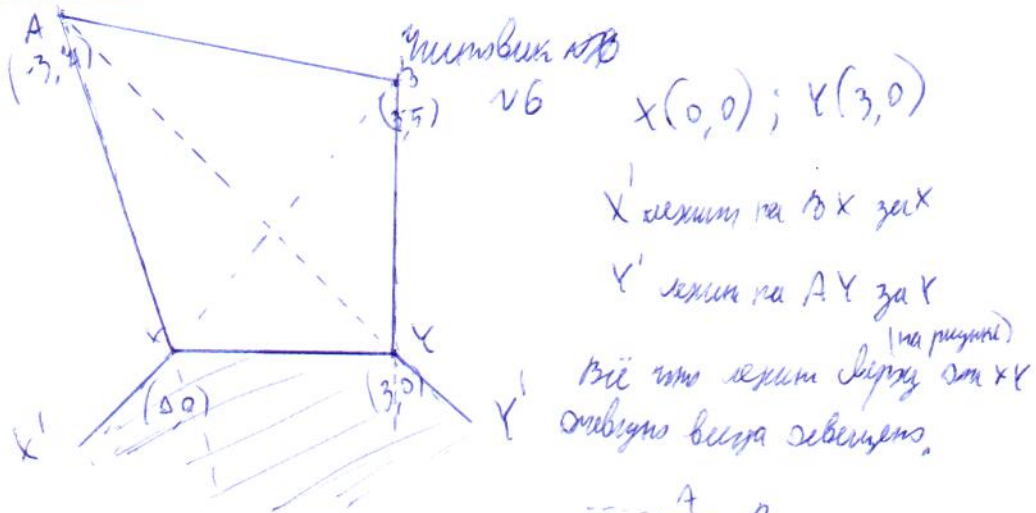 A
(-3, )
B
Чистовик
№6
( ,5)
X(0,0); Y(3,0)
X' лежит на BX за X
Y' лежит на AY за Y
(на рисунке)
Всё что лежит сверху XY
очевидно всегда освещено.
X
Y
(0 0)
(3,0)
X'
Y'
A